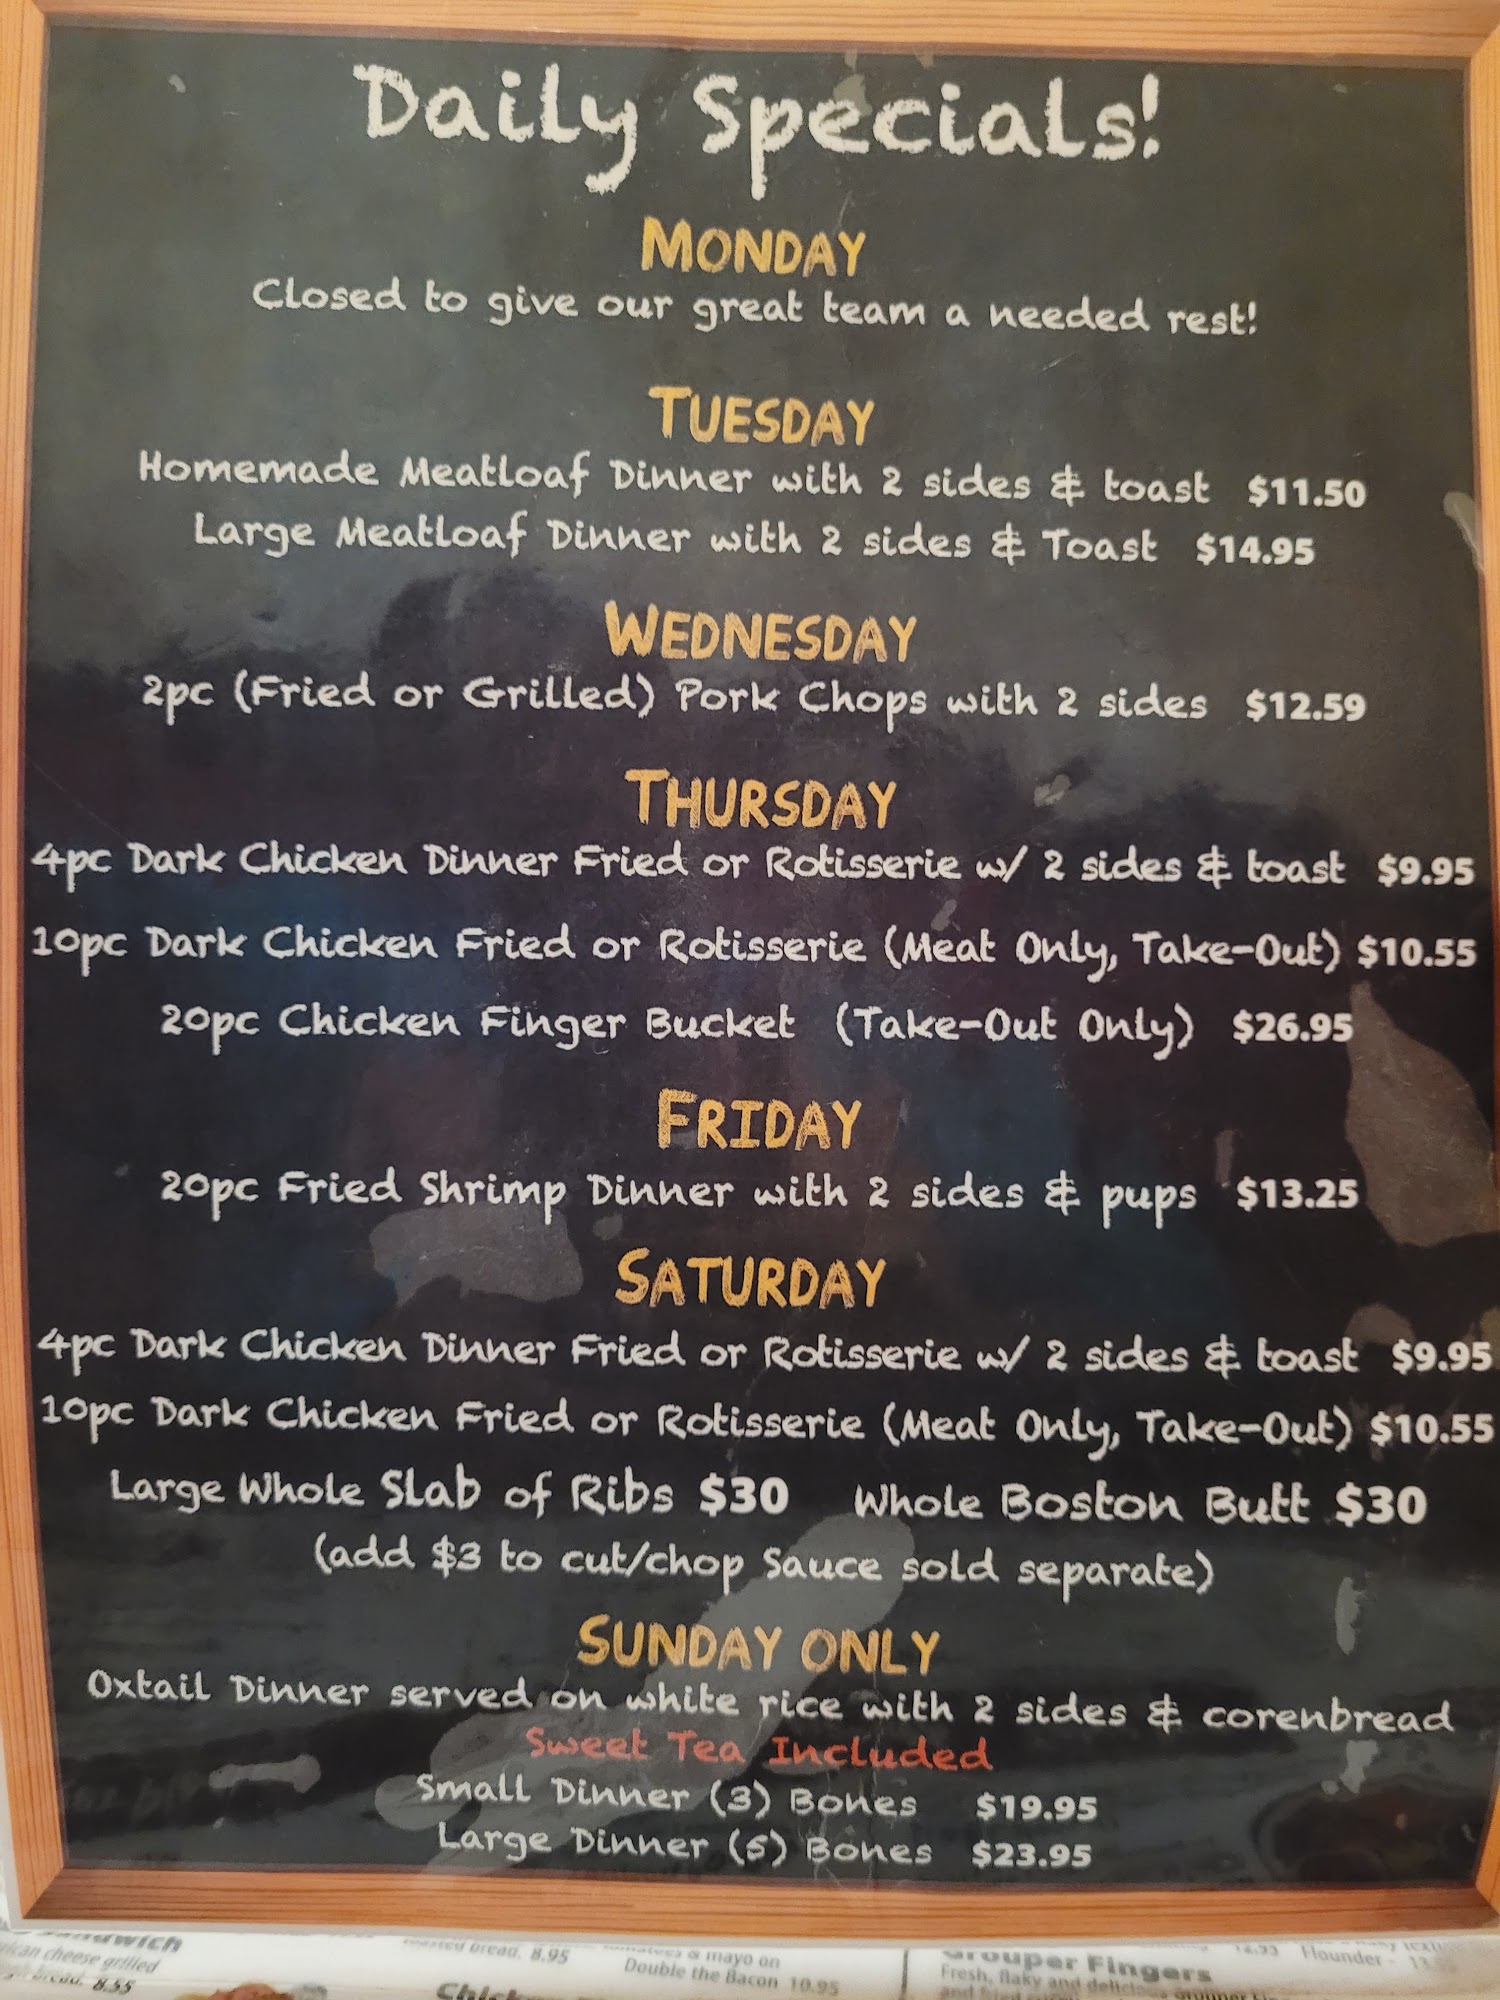 Daily Specials!
MONDAY
Closed to give our great team a needed rest!
TUESDAY
Homemade Meatloaf Dinner with 2 sides & toast $11.50
Large Meatloaf Dinner with 2 sides & Toast $14.95
WEDNESDAY
2pc (Fried or Grilled) Pork Chops with 2 sides $12.59
THURSDAY
4pc Dark Chicken Dinner Fried or Rotisserie w/ 2 sides & toast $9.95
10pc Dark Chicken Fried or Rotisserie (Meat Only, Take-Out) $10.55
20pc Chicken Finger Bucket (Take-Out Only) $26.95
FRIDAY
20pc Fried Shrimp Dinner with 2 sides & pups $13.25
SATURDAY
4pc Dark Chicken Dinner Fried or Rotisserie w/ 2 sides & toast $9.95
10pc Dark Chicken Fried or Rotisserie (Meat Only, Take-Out) $10.55
Large Whole Slab of Ribs $30 Whole Boston Butt $30
(add $3 to cut/chop Sauce sold separate)
SUNDAY ONLY
Oxtail Dinner served on white rice with 2 sides & corenbread
Sweet Tea Included
Small Dinner (3) Bones $19.95
Large Dinner (5) Bones $23.95
cheese grilled
8.55
bread. 8.95
& mayo on
Double the Bacon 10.95
Grouper Fingers
Fresh, flaky and
Flounder -